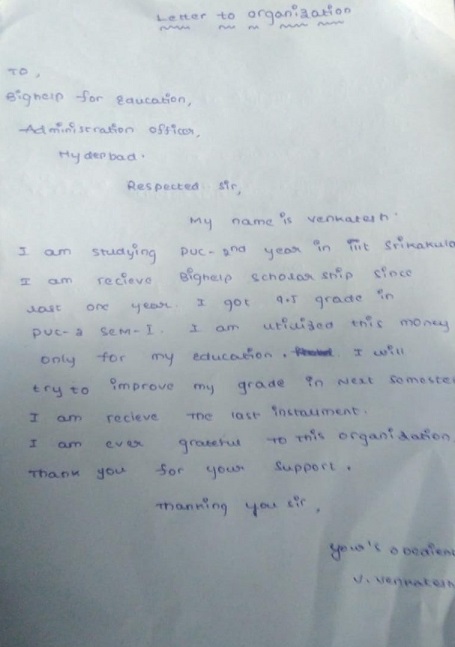 Letter to organization
To,
Bighelp for Education,
Administration officer,
Hyderbad.
Respected sir,
My name is Venkatesh.
I am studying PUC-2nd year in IIIT Srikakula
I am recieve Bighelp scholar ship since
last one year. I got 9.5 grade in
PUC-2 SEM-I. I am utidized this money
only for my education. I will
try to improve my grade in Next Semeste
I am recieve the last installment.
I am ever grateful to this organization
Thank you for your support.
Thanking you sir,
your's obedien
V. Venkatesh